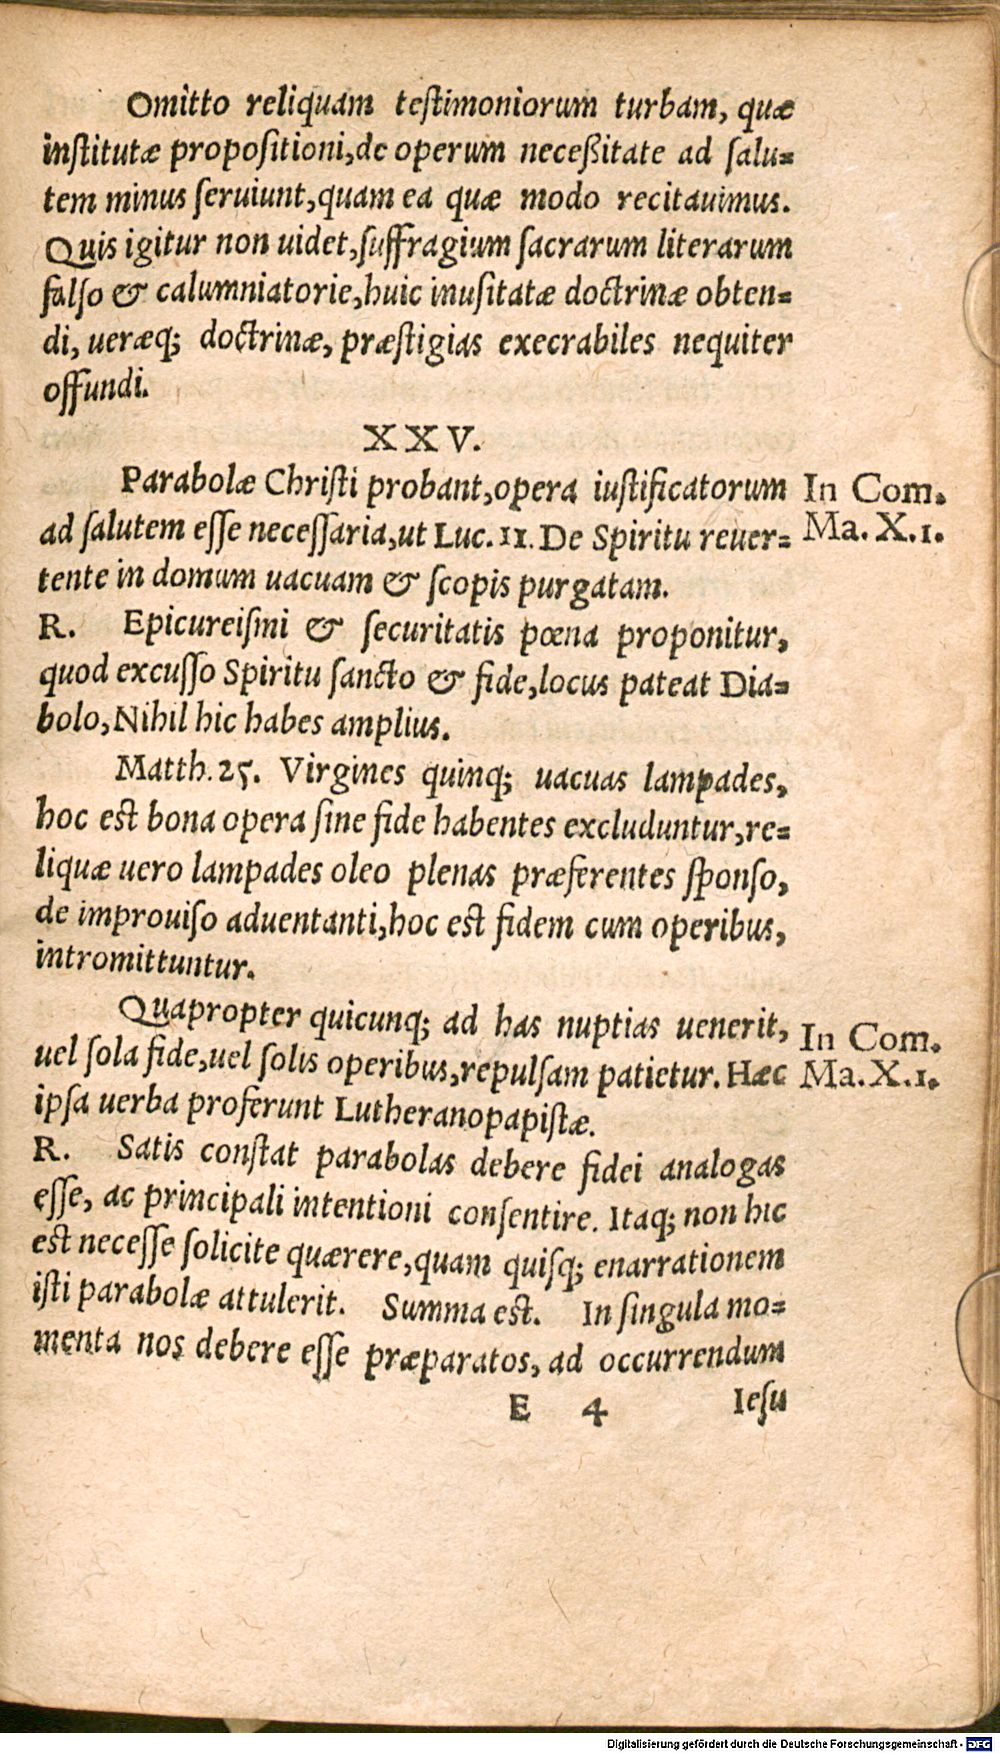 Omitto reliquam teſtimoniorum turbam, quæ
inſtitutæ propoſitioni, de operum neceßitate ad ſalu=
tem minus ſeruiunt, quam ea quæ modo recitauimus.
Quis igitur non uidet, ſuffragium ſacrarum literarum
falſo & calumniatorie, huic inuſitatæ doctrinæ obten=
di, ueræq; doctrinæ, præſtigias execrabiles nequiter
offundi.
XXV.
Parabolæ Chriſti probant, opera iuſtificatorum
In Com.
ad ſalutem eſſe neceſſaria, ut Luc. 11. De Spiritu reuer=
Ma. X.1.
tente in domum uacuam & ſcopis purgatam.
R. Epicureiſmi & ſecuritatis pœna proponitur,
quod excuſſo Spiritu ſancto & fide, locus pateat Dia=
bolo, Nihil hic habes amplius.
Matth. 25. Virgines quinq; uacuas lampades,
hoc eſt bona opera ſine fide habentes excluduntur, re=
liquæ uero lampades oleo plenas præferentes ſponſo,
de improuiſo aduentanti, hoc eſt fidem cum operibus,
intromittuntur.
Quapropter quicunq; ad has nuptias uenerit,
In Com.
uel ſola fide, uel ſolis operibus, repulſam patietur. Hæc
Ma. X.1.
ipſa uerba proferunt Lutheranopapiſtæ.
R. Satis conſtat parabolas debere fidei analogas
eſſe, ac principali intentioni conſentire. Itaq; non hic
eſt neceſſe ſolicite quærere, quam quiſq; enarrationem
iſti parabolæ attulerit. Summa eſt. In ſingula mo=
menta nos debere eſſe præparatos, ad occurrendum
E 4 Ieſu
Digitalisierung gefördert durch die Deutsche Forschungsgemeinschaft - DFG